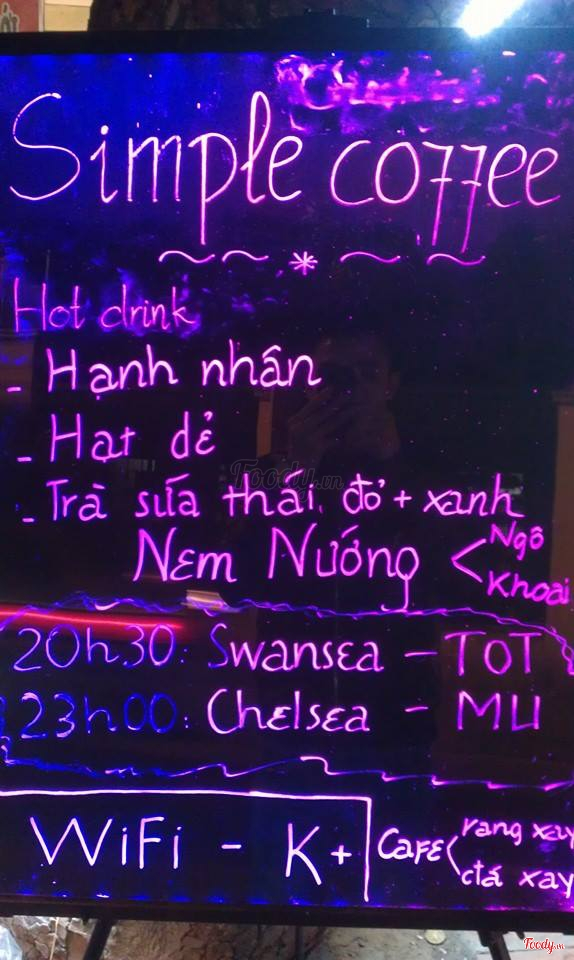 Simple coffee
~ ~ * ~ ~
Hot drink
- Hạnh nhân
- Hạt dẻ
- Trà sữa thái đỏ + xanh
Nem Nướng < Ngô
Khoai
20h30: Swansea - TOT
23h00: Chelsea - MU
WiFi - K+
Cafe < rang xay
đá xay
Foody.vn
Foody.vn